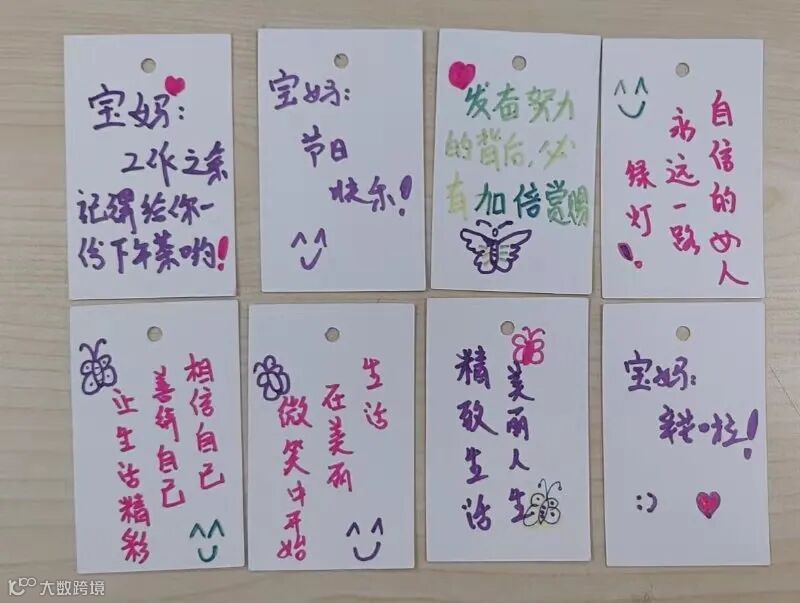 宝妈：
工作之余
记得给你一
份下午茶哟！
宝妈：
节日
快乐！
发奋努力
的背后，必
有加倍赏赐
自信的女人
永远一路
绿灯！
相信自己
善待自己
让生活精彩
生活
在美丽
微笑中开始
美丽人生
精致生活
宝妈：
辛苦啦！
:)
大数跨境